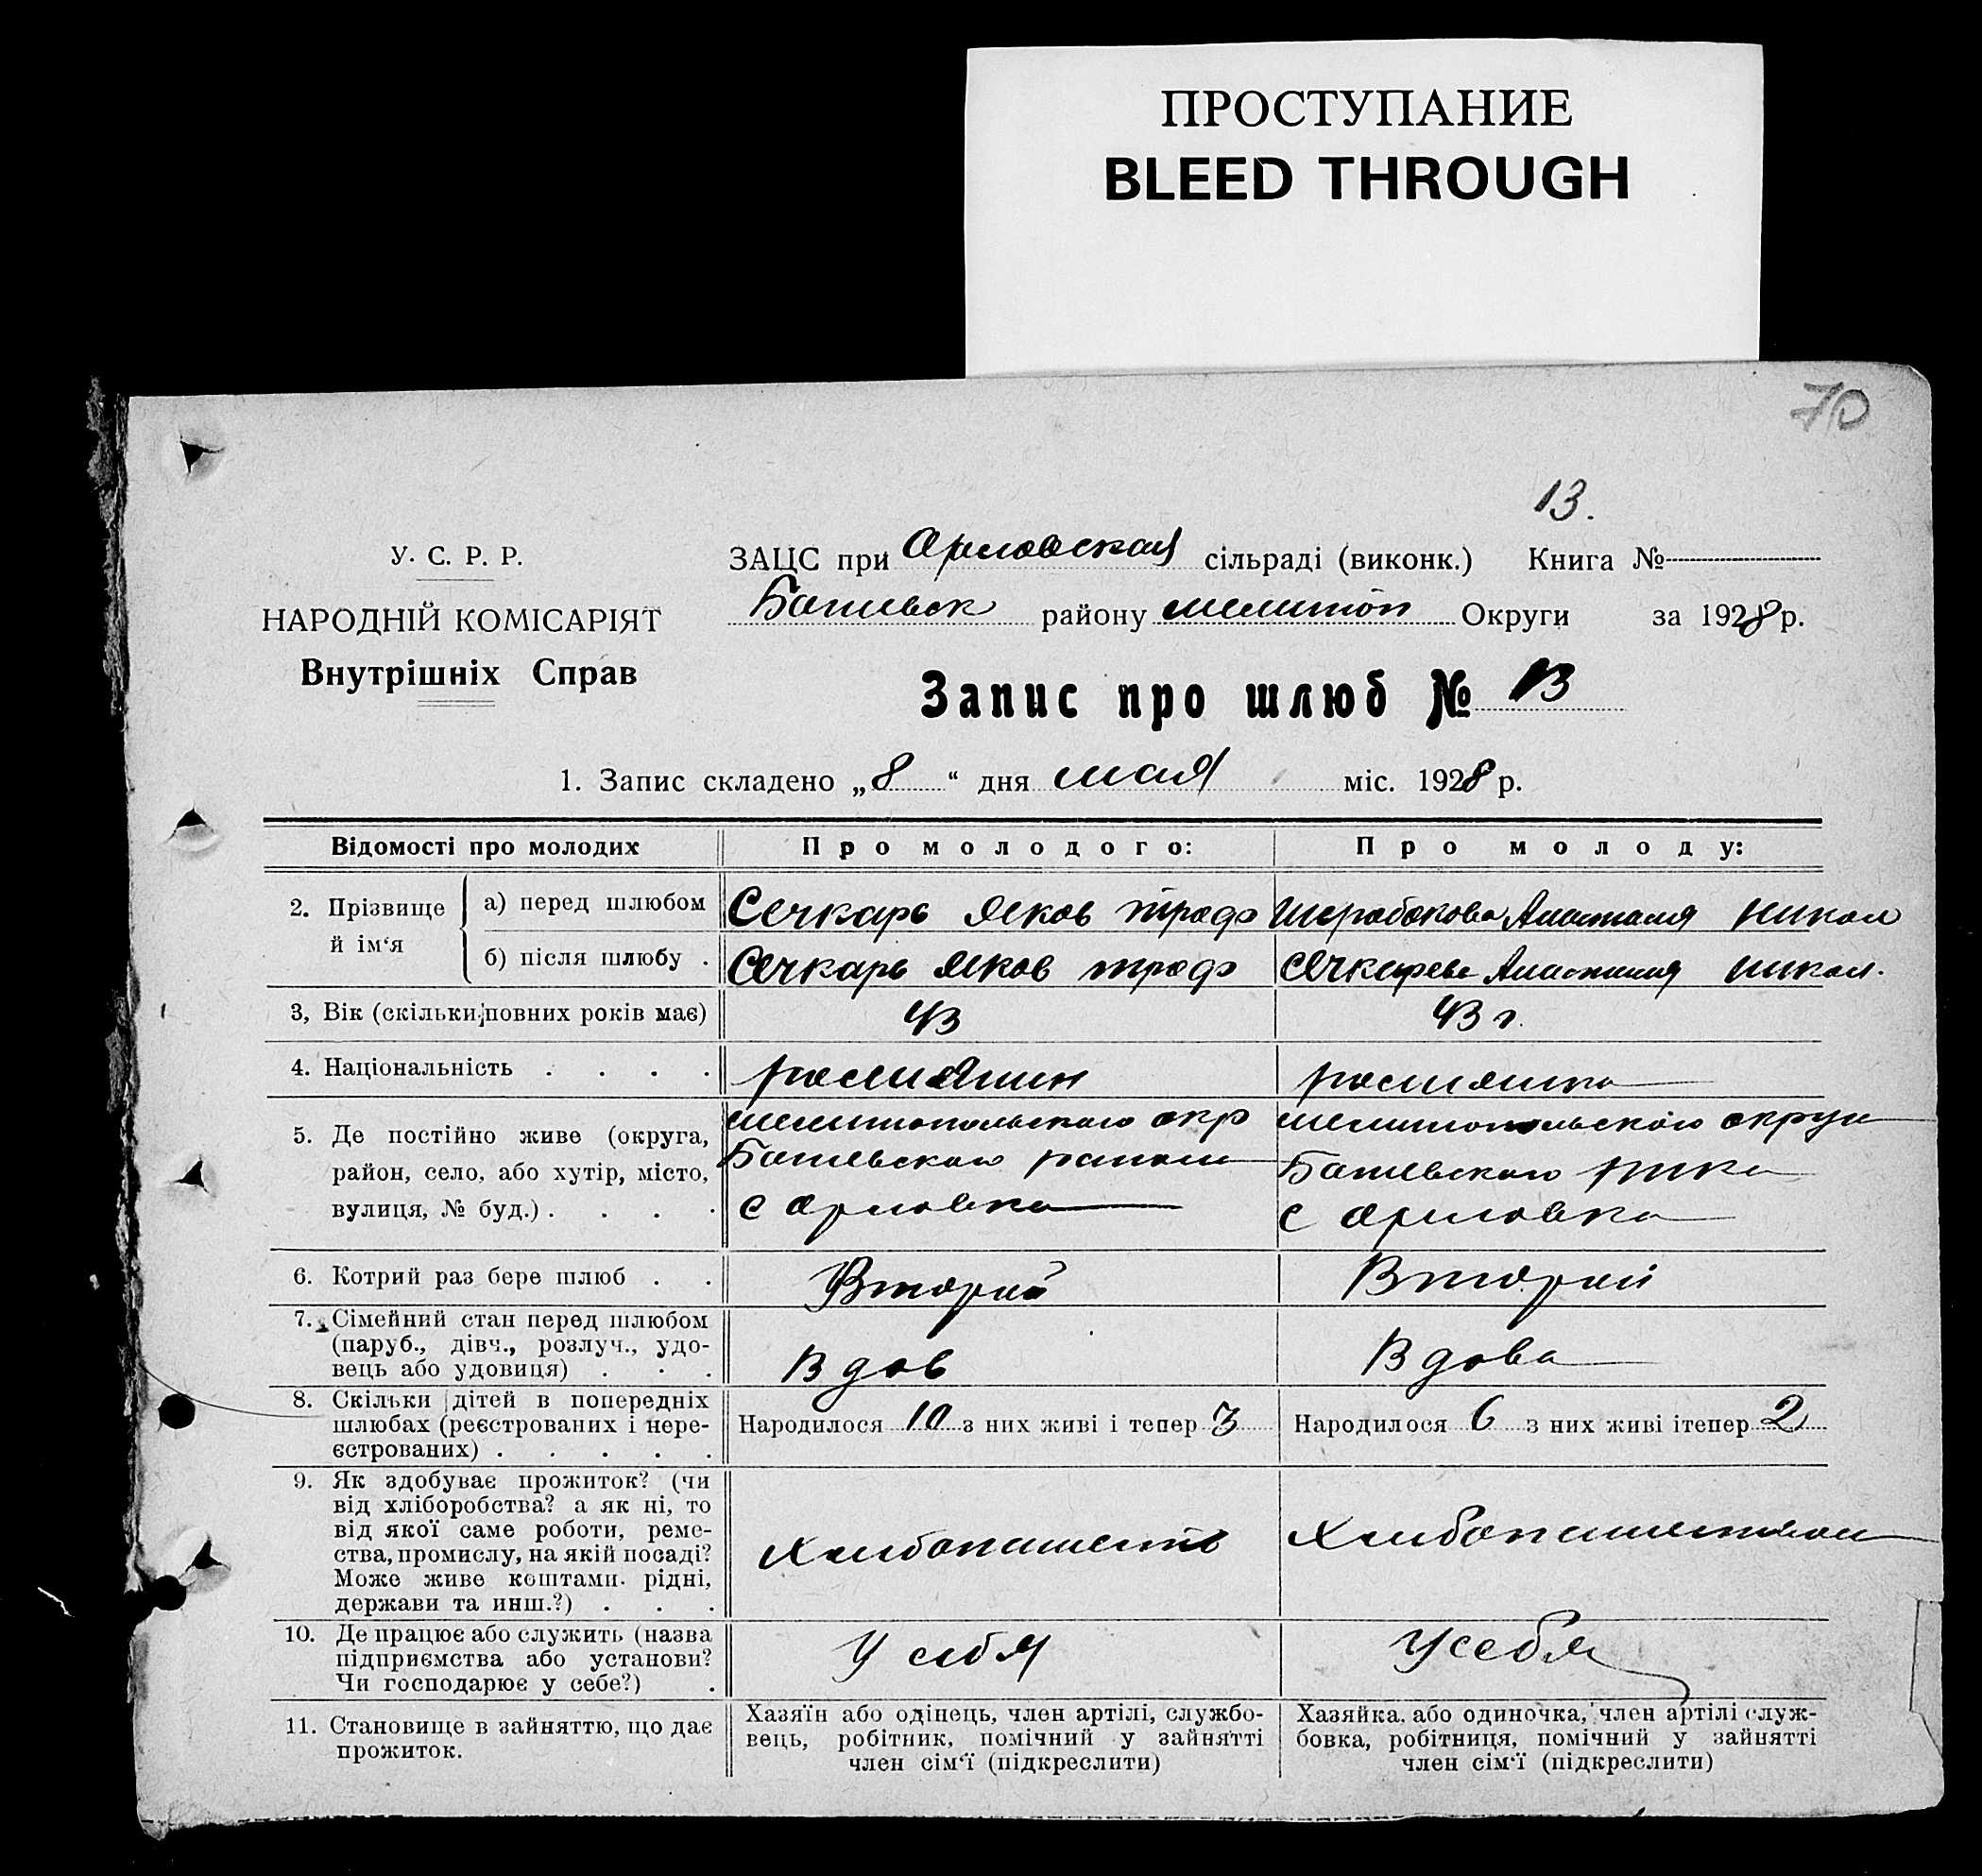 ПРОСТУПАНИЕ
BLEED THROUGH
70
13.
У. С. Р. Р.
НАРОДНІЙ КОМІСАРІЯТ
Внутрішніх Справ
ЗАЦС при Орловская сільраді (виконк.) Книга №
району мелитоп Округи за 1928 р.
Запис про шлюб № 13
1. Запис складено „8“ дня мая міс. 1928 р.
Відомості про молодих Про молодого: Про молоду:
2. Прізвище й ім‘я
а) перед шлюбом Сечкарь Яков троф Анастасия никол
б) після шлюбу . Сечкарь Яков троф Сечкарева Анастасия никол.
3, Вік (скільки повних років має) 43 43 г.
4. Національність . . . . россиянин россиянка
5. Де постійно живе (округа,
район, село, або хутір, місто,
вулиця, № буд.) . . . .
мелитопольского окр
с Орловка
мелитопольского округа
с Орловка
6. Котрий раз бере шлюб . . Вторий Вторий
7. Сімейний стан перед шлюбом
(паруб., дівч., розлуч., удо-
вець або удовиця) . . .
Вдов Вдова
8. Скільки дітей в попередніх
шлюбах (реєстрованих і нере-
єстрованих) . . . . .
Народилося 10 з них живі і тепер 3
Народилося 6 з них живі ітепер 2
9. Як здобуває прожиток? (чи
від хліборобства? а як ні, то
від якої саме роботи, реме-
ства, промислу, на якій посаді?
Може живе коштами рідні,
держави та инш.?) . . .
10. Де працює або служить (назва
підприємства або установи?
Чи господарює у себе?) .
У себя У себя
11. Становище в зайняттю, що дає
прожиток.
Хазяїн або одінець, член артілі, службо-
вець, робітник, помічний у зайнятті
член сім‘ї (підкреслити)
Хазяйка, або одиночка, член артілі служ-
бовка, робітниця, помічний у зайнятті
член сім‘ї (підкреслити)